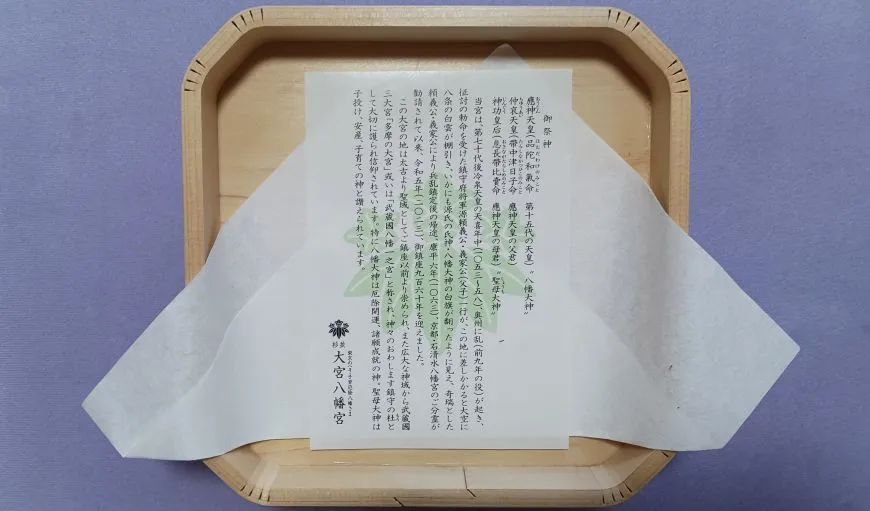 御祭神
應神天皇(品陀和氣命 第十五代の天皇)〝八幡大神〟
仲哀天皇(帶中津日子命 應神天皇の父君)
神功皇后(息長帶比賣命 應神天皇の母君)〝聖母大神〟
当宮は、第七十代後冷泉天皇の天喜年中(一〇五三〜五八)、奥州に乱(前九年の役)が起き、
征討の勅命を受けた鎮守府将軍源頼義公・義家公(父子)一行が、この地に差しかかると大空に
八条の白雲が棚引き、いかにも源氏の氏神・八幡大神の白旗が翻ったように見え、奇瑞とした
頼義公・義家公により兵乱鎮定後の帰途、康平六年(一〇六三)、京都・石清水八幡宮のご分霊が
勧請されて以来、令和五年(二〇二三)、御鎮座九百六十年を迎えました。
この大宮の地は太古より聖域としてご鎮座以前より崇められ、また広大な神域から武蔵國
三大宮「多摩の大宮」或いは「武蔵國八幡一之宮」と称され、神々のおわします鎮守の杜と
して大切に護られ信仰されています。特に八幡大神は厄除開運、諸願成就の神。聖母大神は
子授け、安産、子育ての神と讃えられています。
東京のへそ子育厄除八幡さま
杉並
大宮八幡宮